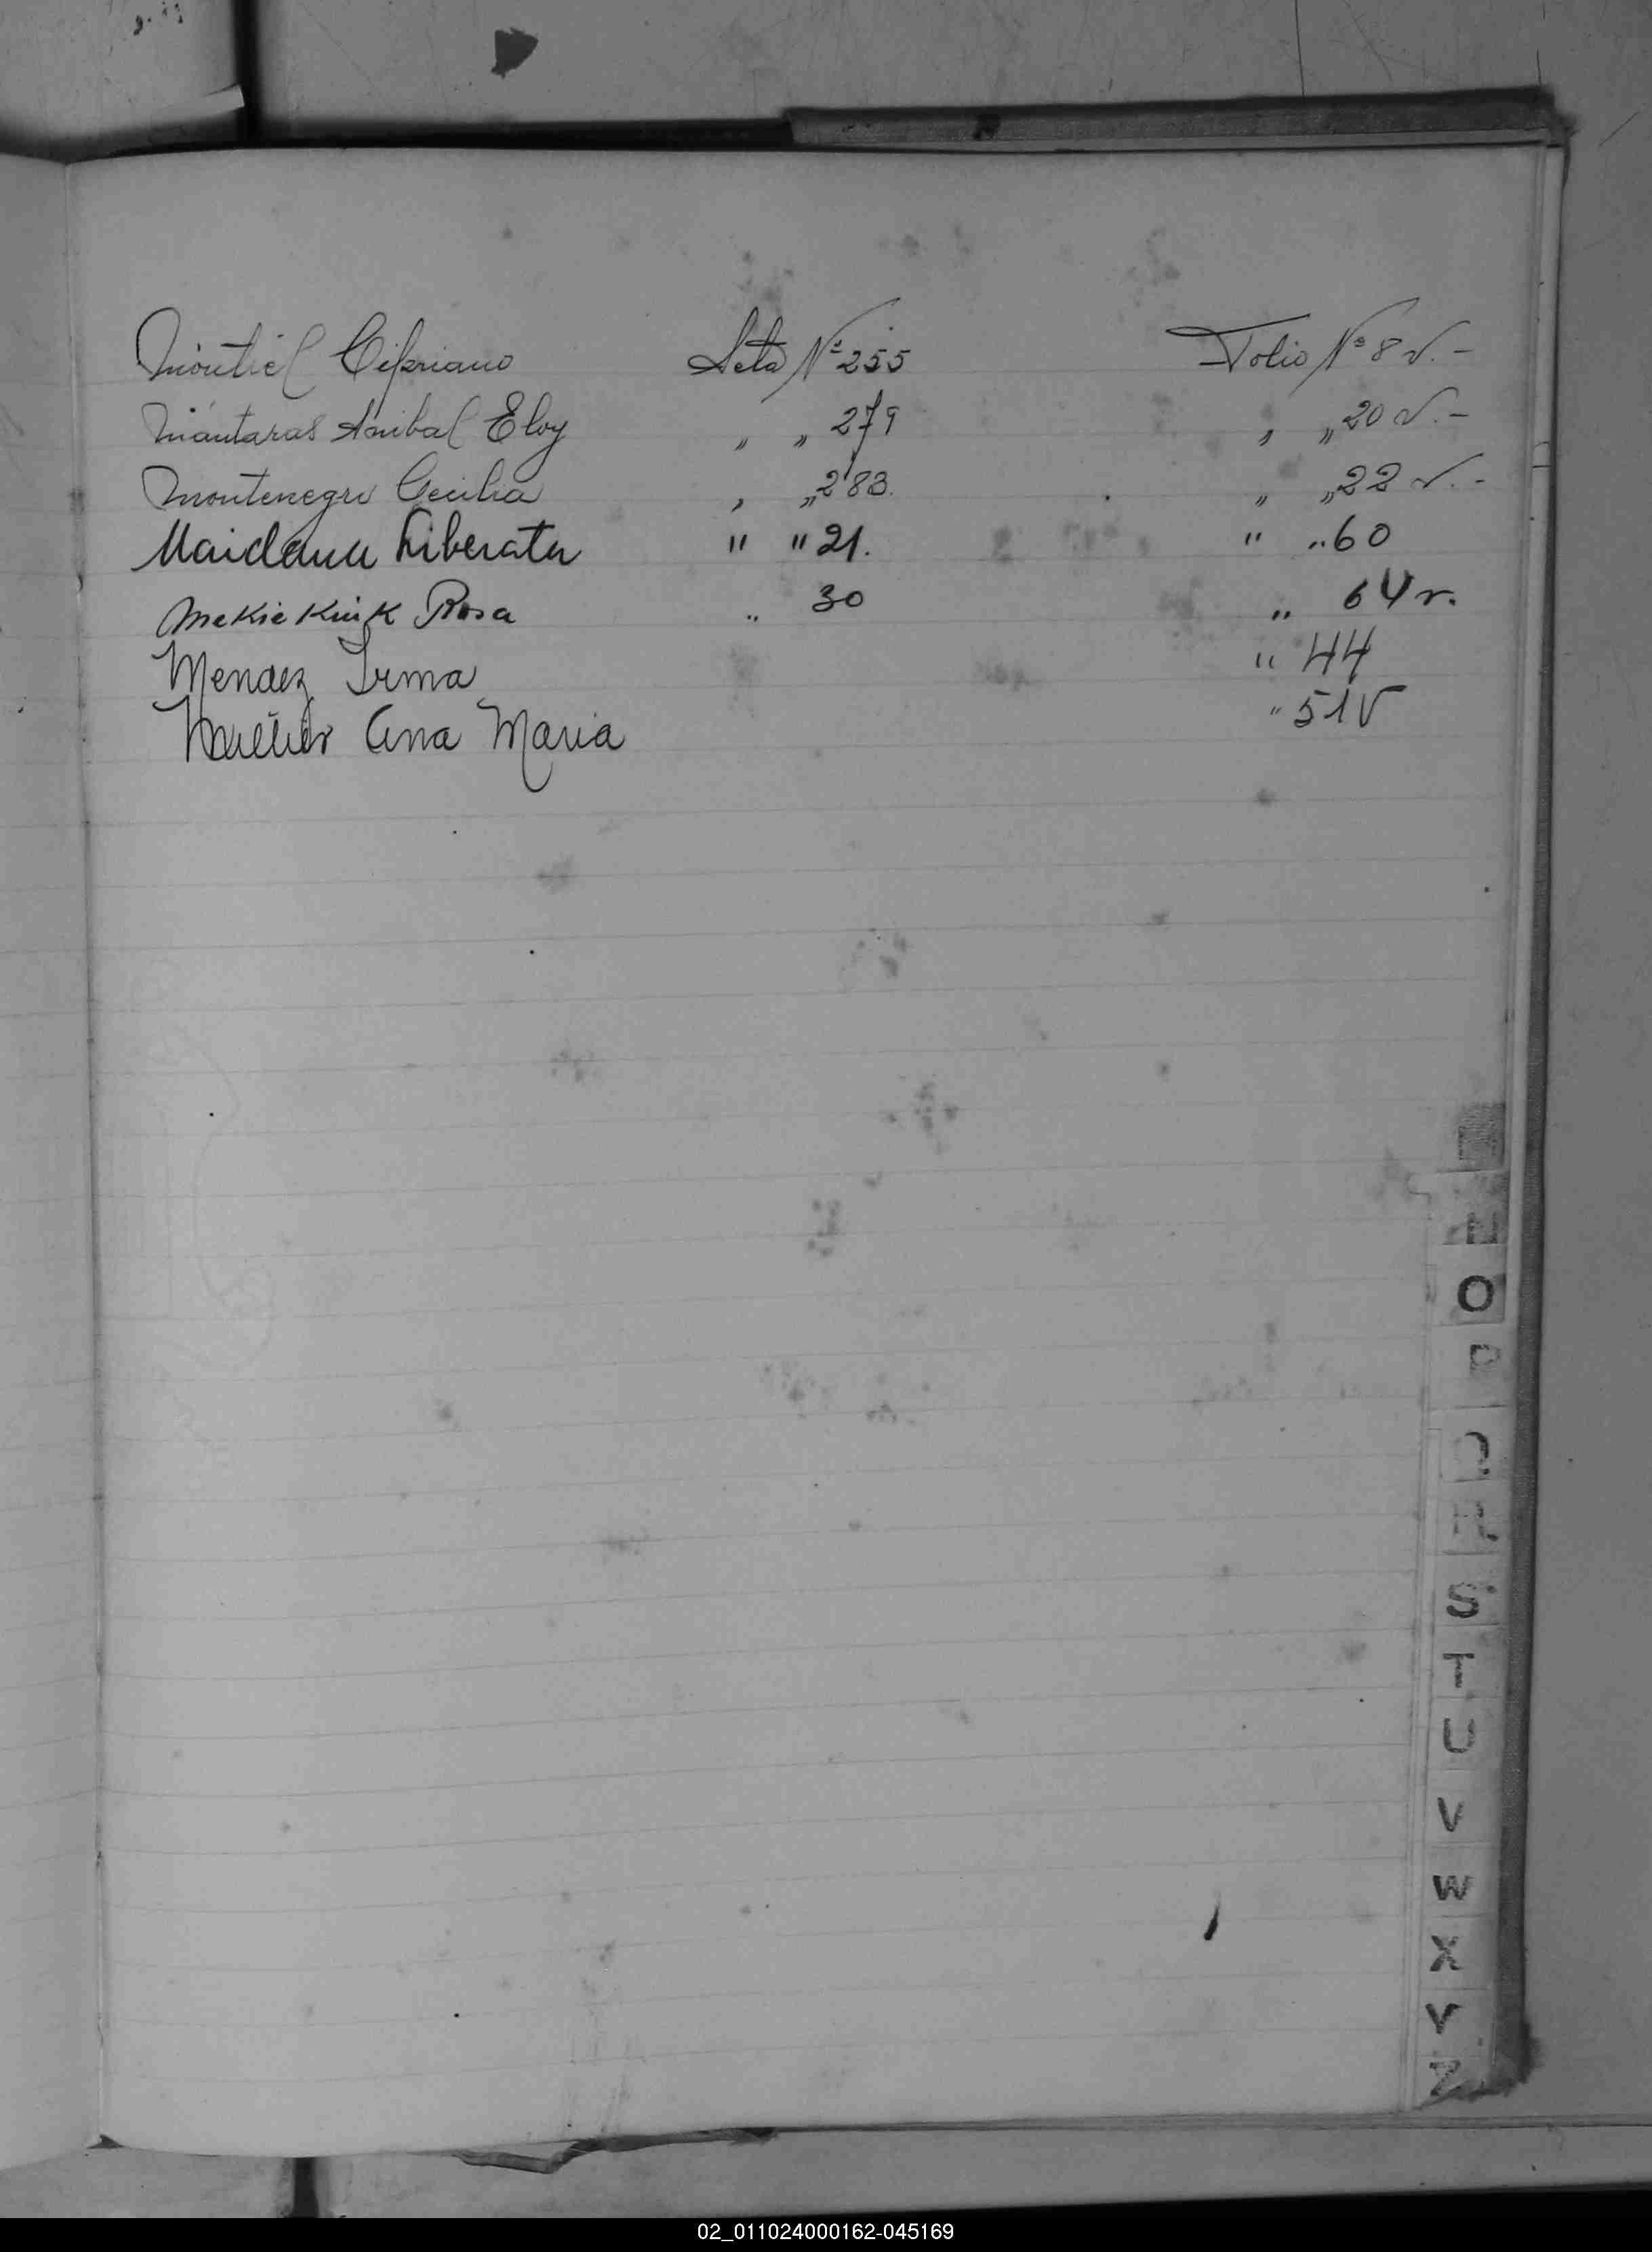 Montiel Cipriano Acta Nº 255 Folio Nº 8 v. -
Mántaras Anibal Eloy " " 279 " " 20 v. -
Montenegro Cecilia " " 283. " " 22 v. -
Maidana Liberata " " 21. " " 60
Mekie Kink Rosa " 30 " 64 v.
Mendez Irma " 44
Ana Maria " 51 V
O
P
Q
R
S
T
U
V
W
X
Y
Z
02_011024000162-045169